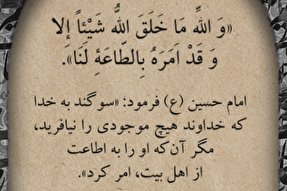 «وَ اللّٰهِ مَا خَلَقَ اللّٰهُ شَیْئاً إلا
وَ قَدْ اَمَرَهُ بِالطّاعَهِٔ لَنَا».
امام حسین (ع) فرمود: «سوگند به خدا
که خداوند هیچ موجودی را نیافرید،
مگر آن‌که او را به اطاعت
از اهل بیت، امر کرد».